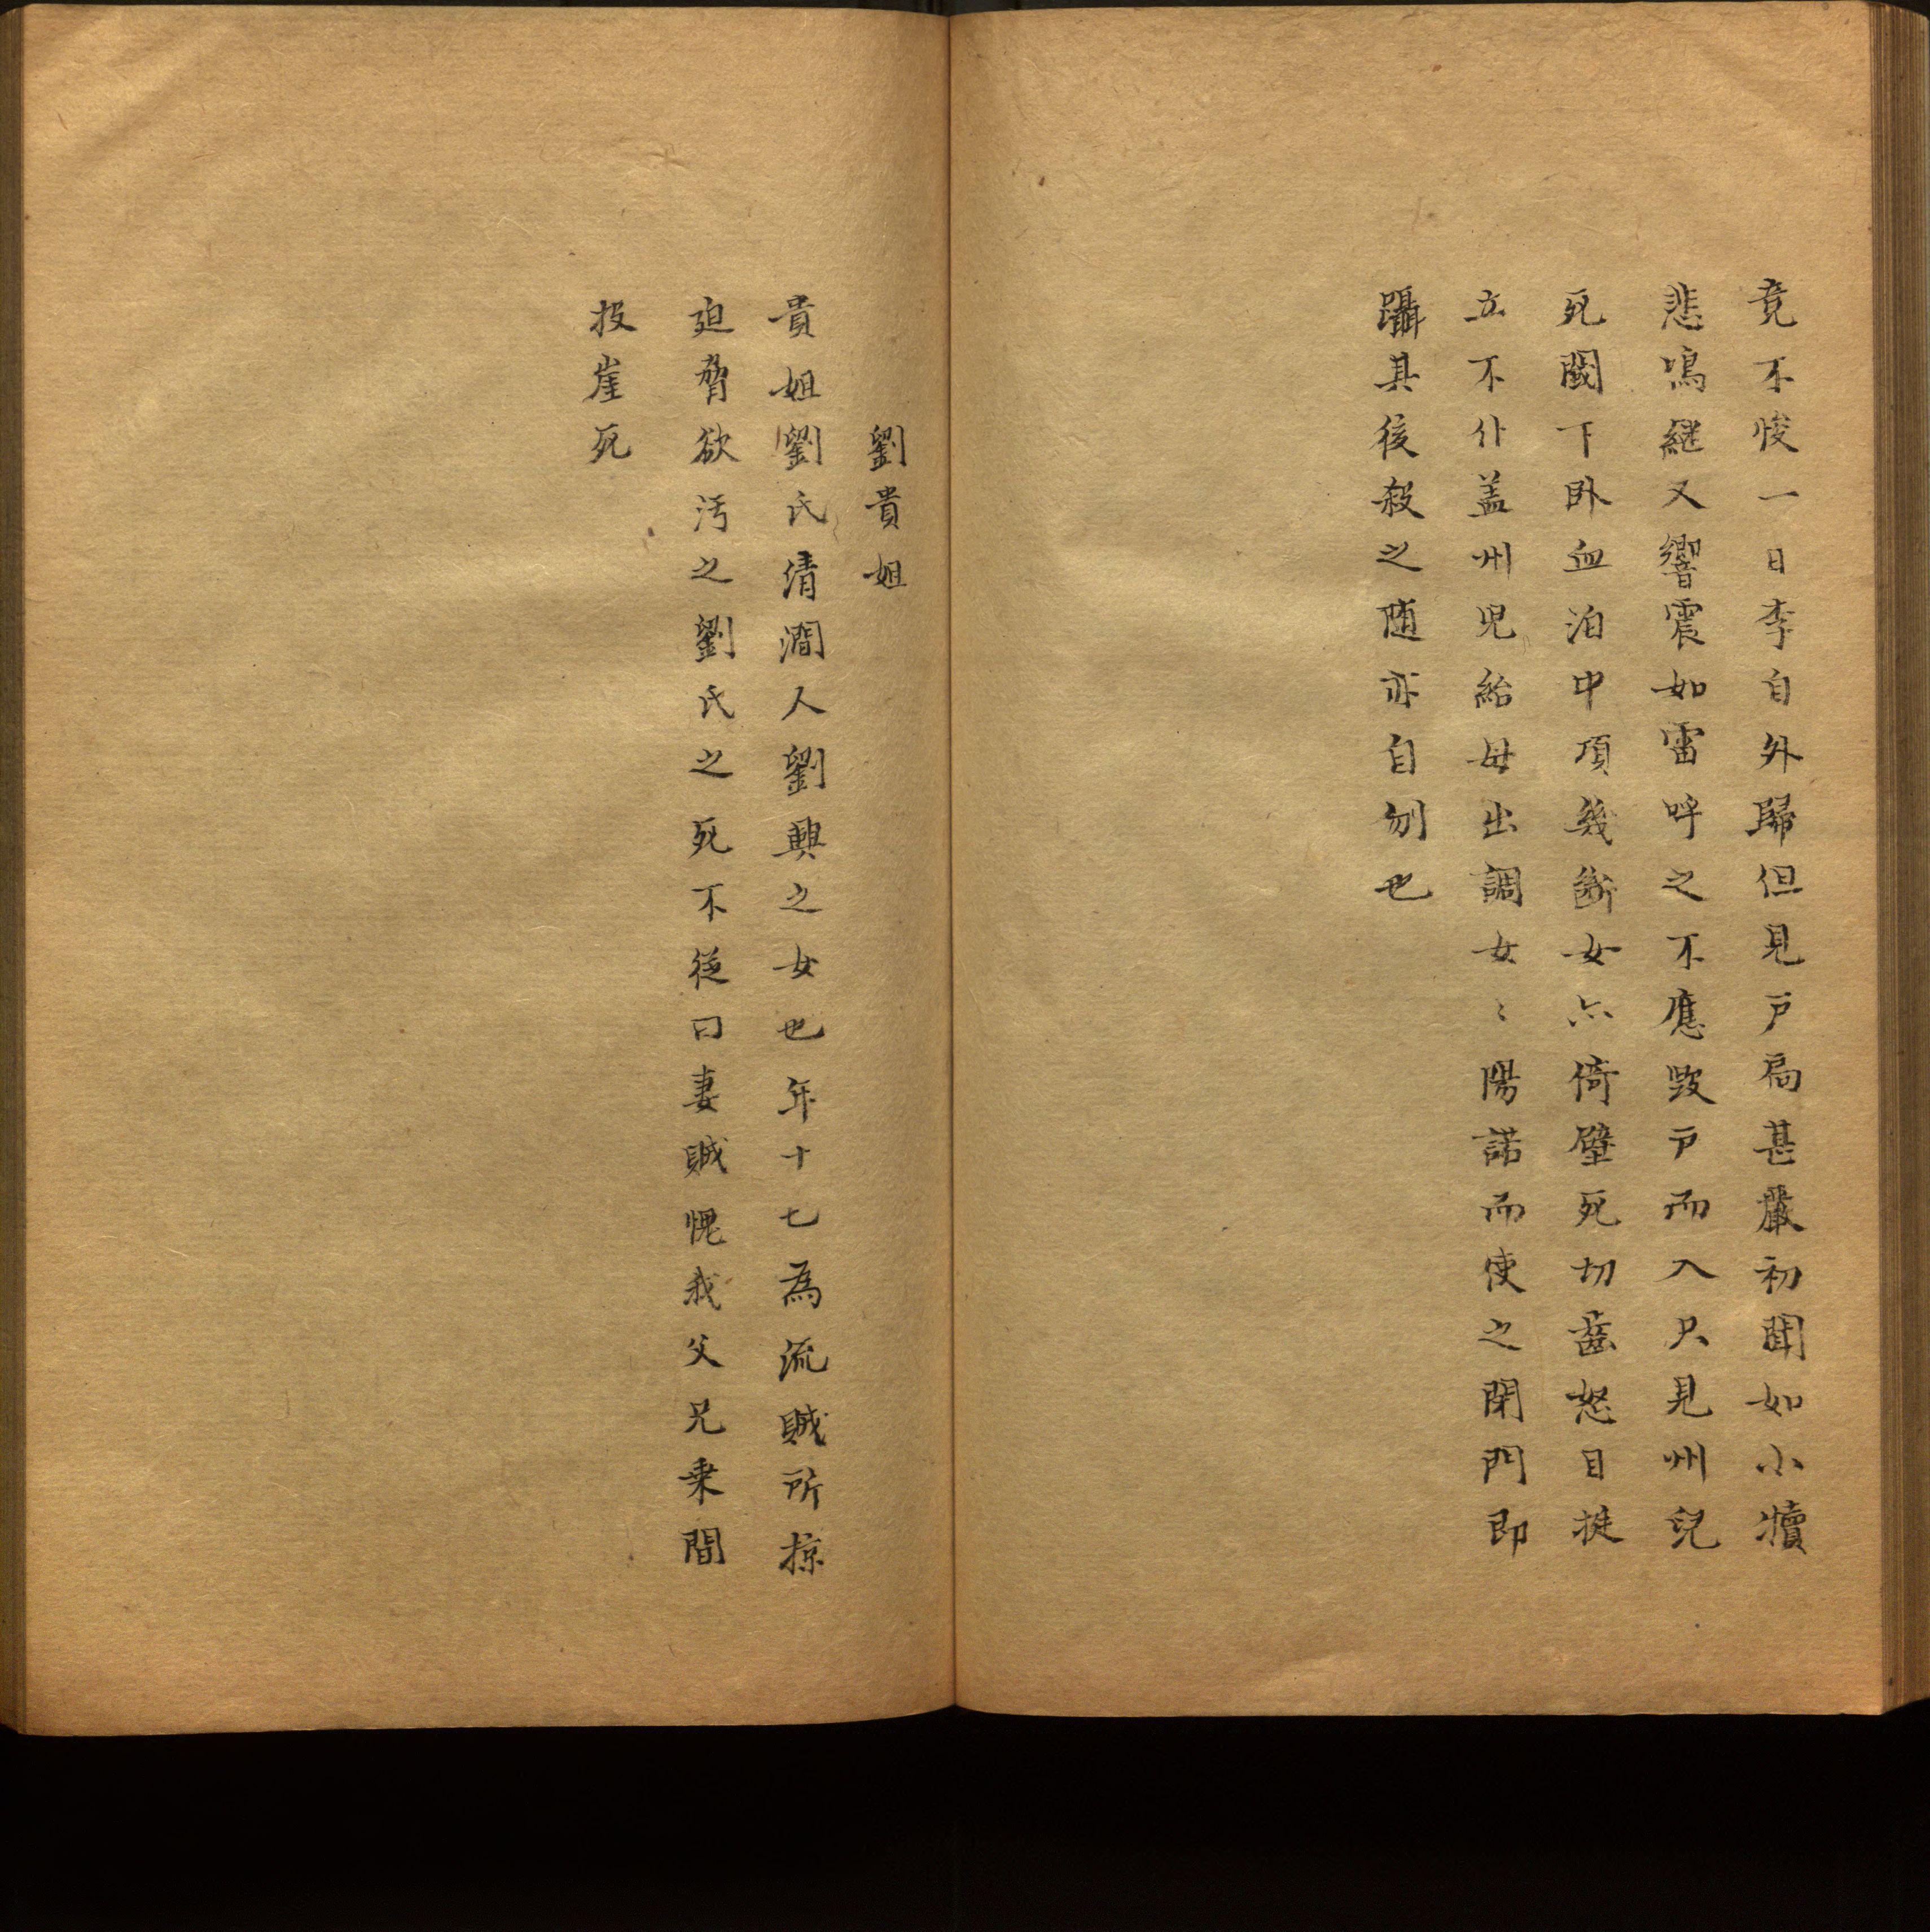 竟不悛一日李自外歸但見戸扃甚嚴初聞如小犢
悲鳴継又響震如雷呼之不應毀戸而入只見州兒
死閾下卧血泊中項幾斷女亦倚壁死切齒怒目挺
立不仆盖州児紿母出調女〻陽諾而使之閉門即
躡其後殺之随亦自刎也
劉貴姐
貴姐劉氏清澗人劉興之女也年十七為流賊所掠
廹脅欲汚之劉氏之死不從曰妻賊愧我父兄乗間
投崖死